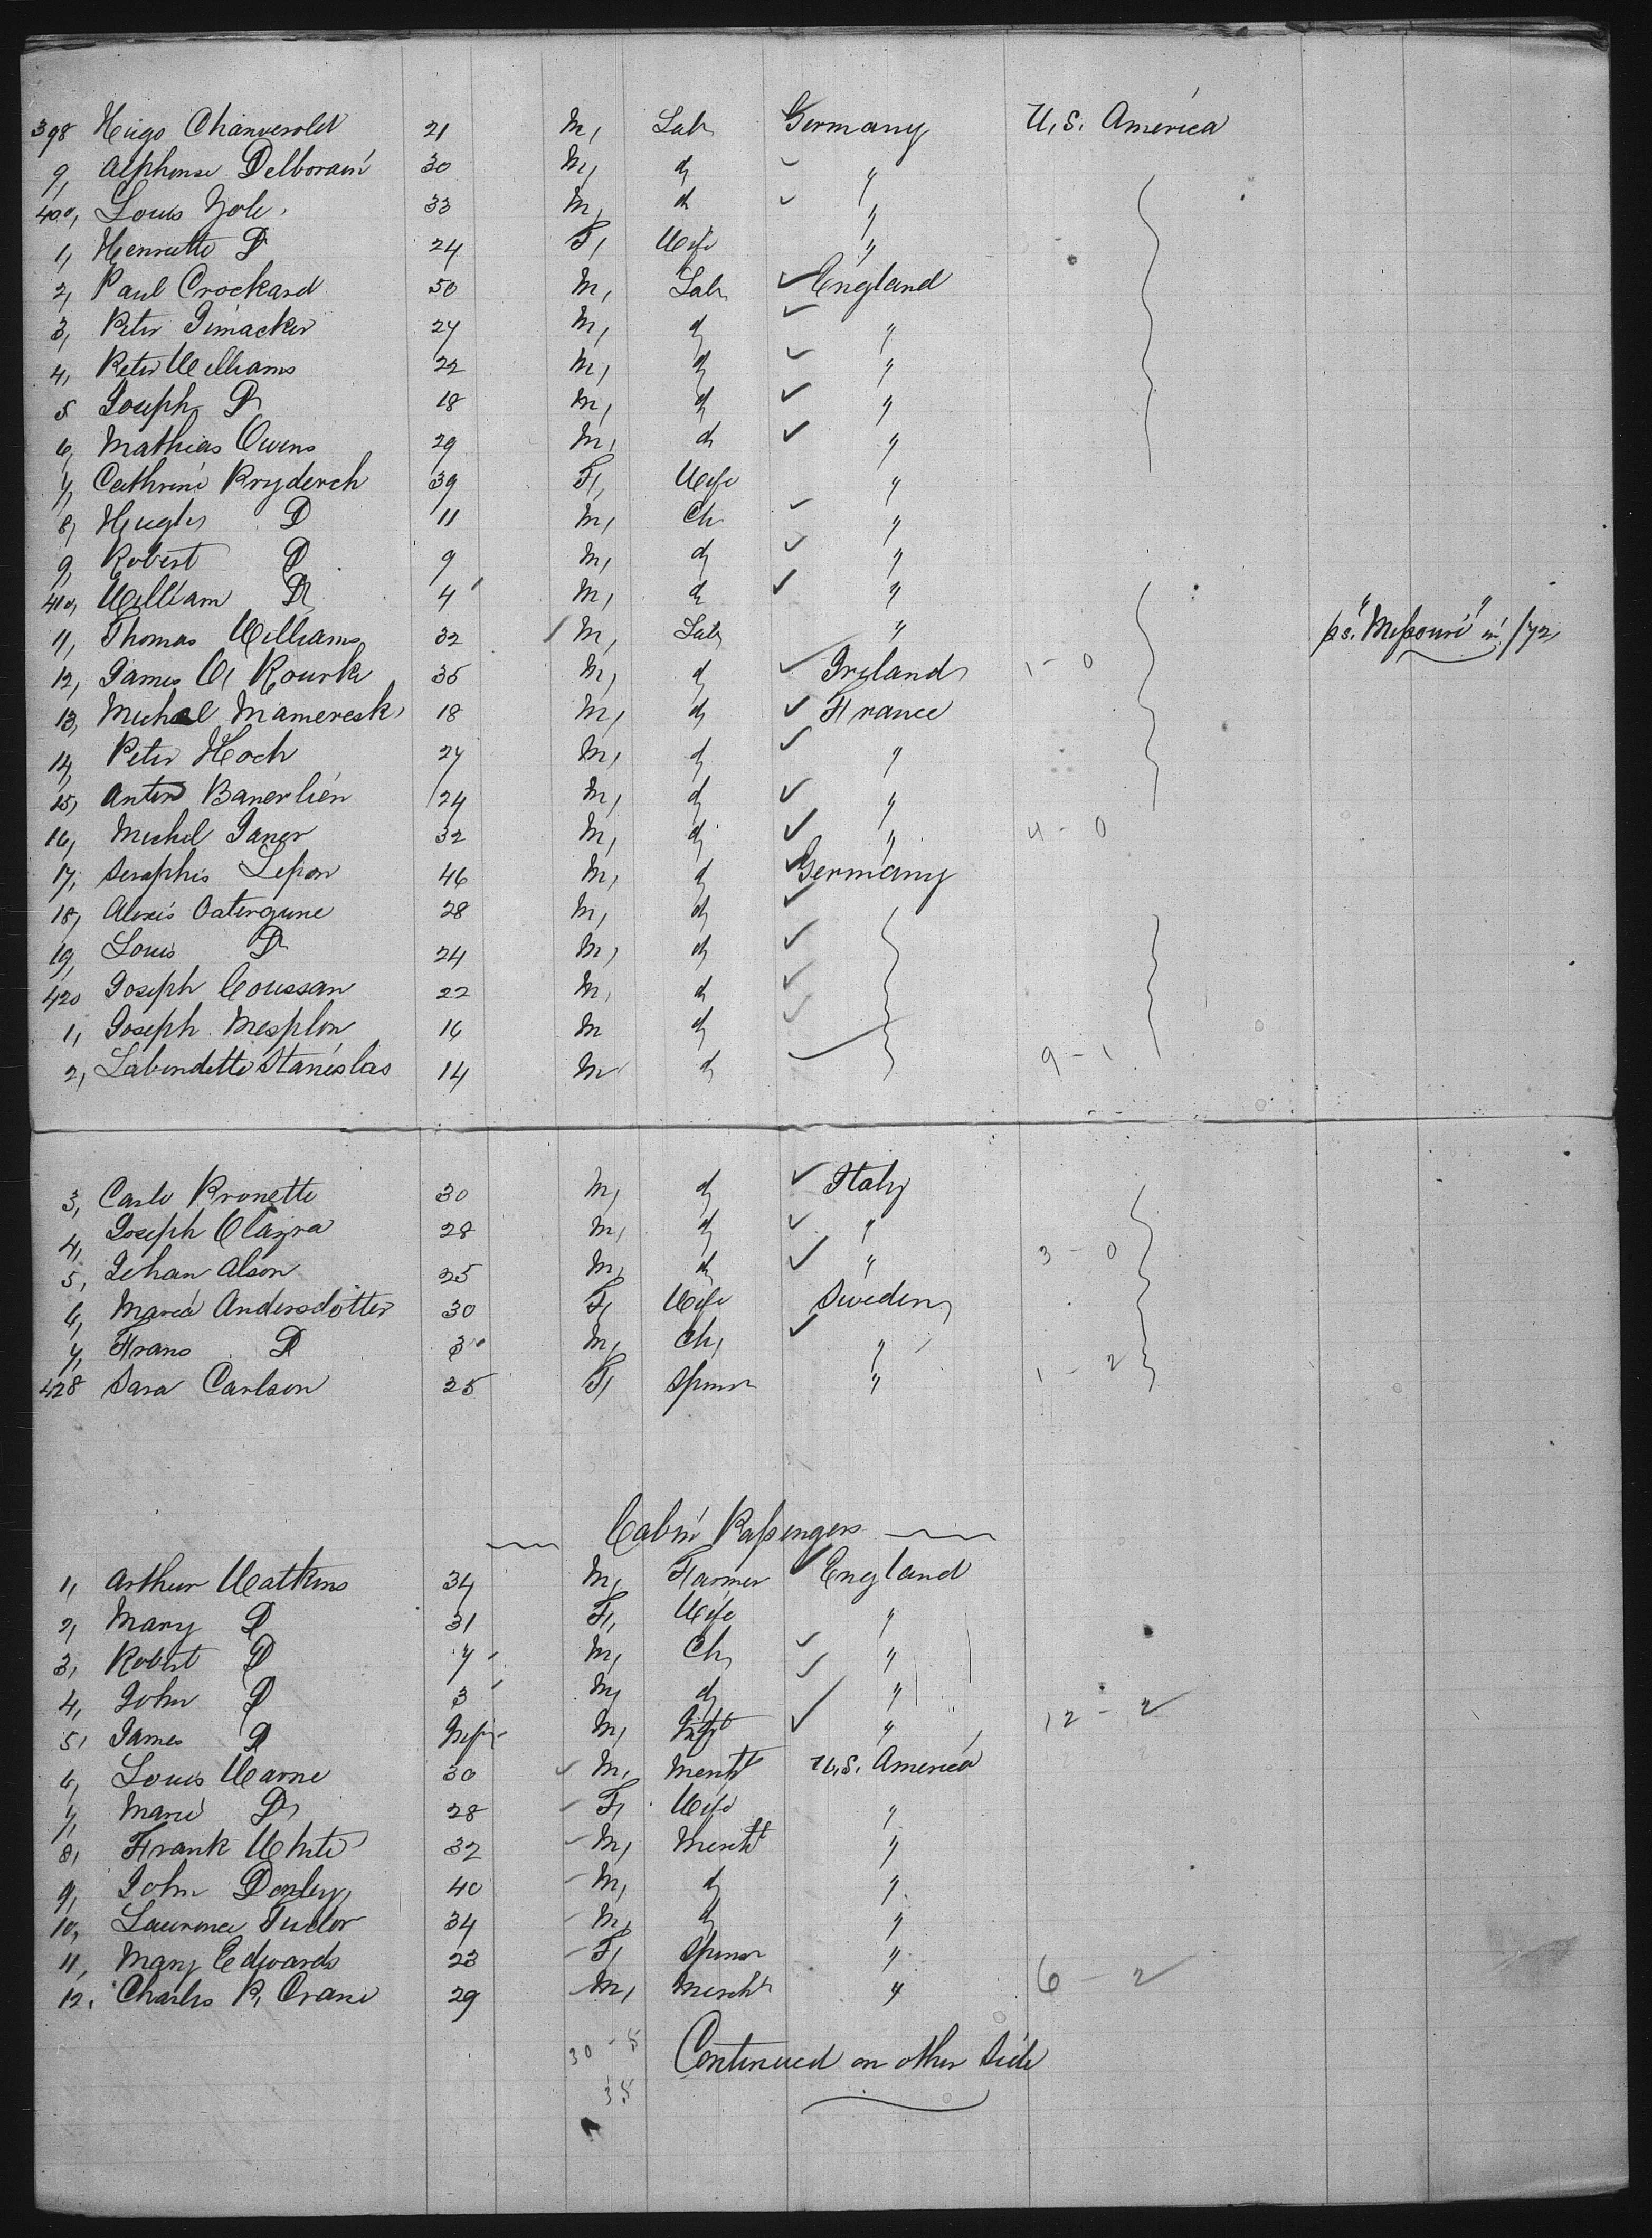 398 Hugo Chanverold 21 M, Lab Germany U.S. America
9, Alphonse Delborain 30 M, d "
400, Louis Zole, 33 M, d "
1, Henriette D 24 F, Wife "
2, Paul Crockard 50 M, Lab England
3, Peter 27 M, d "
4, Peter Williams 22 M, d "
5 Joseph D 18 M, d "
6, Mathias Owens 29 M, d "
7, Cathrine Pryderch 39 F, Wife "
8, Hughs D 11 M, Ch "
9, Robert D 9 M, d "
410, William D 4 M, d "
11, Thomas Williams 32 M, Lab " ps. "Missouri" in /72
12, James O, Rourke 35 M, d Ireland 1-0
13, Michael Mameresk, 18 M, d France
14, Peter Hoch 27 M, d "
15, Anton Banerlien 24 M, d "
16, Michel Janer 32 M, d " 4-0
17, Seraphis Lepon 46 M, d Germany
18, Alexis Catergune 28 M, d
19, Louis D 24 M, d
420 Joseph Coussan 22 M, d
1, Joseph Mesplon 16 M d
2, Labendette Stanislas 14 M d 9-1
3, Carlo Pronette 30 M, d Italy
4, Joseph Clazra 28 M, d "
5, Johan Alson 25 M, d " 3-0
6, Maria Andersdotter 30 F, Wife Sweden
7, Frans D 3 M, Ch, "
428 Sara Carlson 25 F, Spinsr " 1-2
Cabin Passengers
1, Arthur Watkins 34 M, Farmer England
2, Mary D 31 F, Wife "
3, Robert D 7 M, Ch, "
4, John D 3 M, d "
5, James D Inft M, Inft " 12-2
6, Louis Warne 30 M, Mercht U.S. America
7, Marie D 28 F, Wife "
8, Frank White 32 M, Mercht "
9, John Donley, 40 M, d "
10, Laurence Tudor 34 M, d "
11, Mary Edwards 23 F, Spinsr "
12, Charles R, Crane 29 M, Mercht " 6-2
30-5 Continued on other Side
35